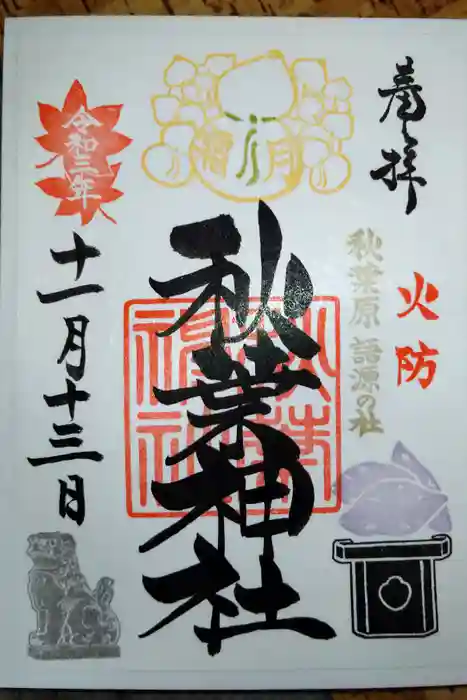 奉拝
火防
秋葉原 語源の社
秋葉神社
秋葉神社
令和三年
十一月十三日